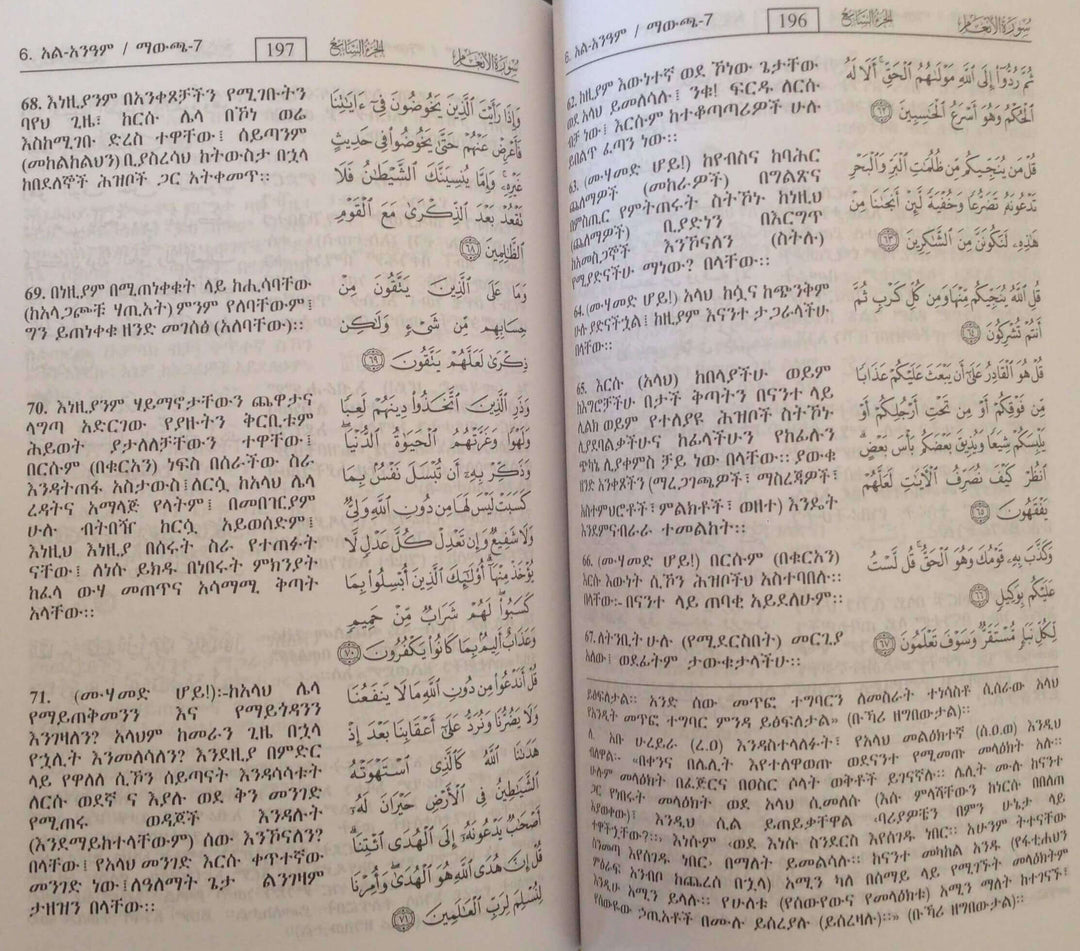 6. አል-አንዓም / ማውጫ-7
196
الجزء السابع
سورة الأنعام
62. ከዚያም እውነተኛ ወደ ኾነው ጌታቸው
ወደ አላህ ይመለሳሉ፤ ንቁ! ፍርዱ ለርሱ
ብቻ ነው፤ እርሱም ከተቆጣጣሪዎች ሁሉ
ይበልጥ ፈጣን ነው።
63. (ሙሃመድ ሆይ!) ከየብስና ከባሕር
ጨለማዎች (መከራዎች) በግልጽና
በምስጢር የምትጠሩት ስትኾኑ ከነዚህ
(ጨለማዎች) ቢያድነን በእርግጥ
ከአመስጋኞች እንኾናለን (ስትሉ)
የሚያድናችሁ ማነው? በላቸው።
64. (ሙሃመድ ሆይ!) አላህ ከሷና ከጭንቅም
ሁሉ ያድናችኋል፤ ከዚያም እናንተ ታጋራላችሁ
በላቸው።
65. እርሱ (አላህ) ከበላያችሁ ወይም
ከእግሮቻችሁ በታች ቅጣትን በናንተ ላይ
ሊልክ ወይም የተለያዩ ሕዝቦች ስትኾኑ
ሊያደባልቃችሁና ከፊላችሁን የከፊሉን
ጭካኔ ሊያቀምስ ቻይ ነው በላቸው። ያውቁ
ዘንድ አንቀጾችን (ማረጋገጫዎች፣ ማስረጃዎች፣
አስተምህሮቶች፣ ምልክቶች፣ ወዘተ) እንዴት
እንደምናብራራ ተመልከት።
66. (ሙሃመድ ሆይ!) በርሱም (በቁርአን)
እርሱ እውነት ሲኾን ሕዝቦችህ አስተባበሉ።
በላቸው:- በናንተ ላይ ጠባቂ አይደለሁም።
67. ለትንቢት ሁሉ (የሚደርስበት) መርጊያ
አለው፤ ወደፊትም ታውቁታላችሁ።
ثُمَّ رُدُّوٓا۟ إِلَى ٱللَّهِ مَوْلَىٰهُمُ ٱلْحَقِّ ۚ أَلَا لَهُ
ٱلْحُكْمُ وَهُوَ أَسْرَعُ ٱلْحَٰسِبِينَ ٦٢
قُلْ مَن يُنَجِّيكُم مِّن ظُلُمَٰتِ ٱلْبَرِّ وَٱلْبَحْرِ
تَدْعُونَهُۥ تَضَرُّعًا وَخُفْيَةً لَّئِنْ أَنجَىٰنَا مِنْ
هَٰذِهِۦ لَنَكُونَنَّ مِنَ ٱلشَّٰكِرِينَ ٦٣
قُلِ ٱللَّهُ يُنَجِّيكُم مِّنْهَا وَمِن كُلِّ كَرْبٍ ثُمَّ
أَنتُمْ تُشْرِكُونَ ٦٤
قُلْ هُوَ ٱلْقَادِرُ عَلَىٰٓ أَن يَبْعَثَ عَلَيْكُمْ عَذَابًا
مِّن فَوْقِكُمْ أَوْ مِن تَحْتِ أَرْجُلِكُمْ أَوْ
يَلْبِسَكُمْ شِيَعًا وَيُذِيقَ بَعْضَكُم بَأْسَ بَعْضٍ ۗ
ٱنظُرْ كَيْفَ نُصَرِّفُ ٱلْءَايَٰتِ لَعَلَّهُمْ
يَفْقَهُونَ ٦٥
وَكَذَّبَ بِهِۦ قَوْمُكَ وَهُوَ ٱلْحَقُّ ۚ قُل لَّسْتُ
عَلَيْكُم بِوَكِيلٍ ٦٦
لِّكُلِّ نَبَإٍ مُّسْتَقَرٌّ ۚ وَسَوْفَ تَعْلَمُونَ ٦٧
ይፅፍለታል። አንድ ሰው መጥፎ ተግባርን ለመስራት ተነሳስቶ ሲሰራው አላህ
የአንዲት መጥፎ ተግባር ምንዳ ይፅፍለታል» (ቡኻሪ ዘግበውታል)።
ለ. አቡ ሁረይራ (ረ.ዐ) እንዳስተላለፉት፣ የአላህ መልዕክተኛ (ሰ.ዐ.ወ) እንዲህ
ብለዋል:- «በቀንና በሌሊት እየተለዋወጡ ወደናንተ የሚመጡ መላዕክት አሉ።
ሁሉም መላዕክት በፈጅርና በዐስር ሶላት ወቅቶች ይገናኛሉ። ሌሊት ሙሉ ከናንተ
ጋር የነበሩት መላዕክት ወደ አላህ ሲመለሱ (እሱ ምላሻቸውን ከነርሱ በበለጠ
እያወቀው)፤ እንዲህ ሲል ይጠይቃቸዋል ‹ባሪያዎቼን በምን ሁኔታ ላይ
ተዋችኋቸው?›፤ እነሱም ‹ወደ እነሱ ስንደርስ እየሰገዱ ነበር። አሁንም ትተናቸው
ስንመጣ እየሰገዱ ነበር› በማለት ይመልሳሉ። ከናንተ መካከል አንዱ (የፋቲሐህን
ምዕራፍ አንብቦ ከጨረሰ በኋላ) አሚን ካለ በሰማይ ላይ የሚገኙት መላዕክትም
እንዲሁ አሚን ይላሉ። የሁለቱ (የሰውየውና የመላዕክቱ) አሚን ማለት ከተገናኘ፣
የሰውየው ኃጢአቶች በሙሉ ይሰረያሉ (ይሰረዛሉ)።» (ቡኻሪ ዘግበውታል)።
6. አል-አንዓም / ማውጫ-7
197
الجزء السابع
سورة الأنعام
68. እነዚያንም በአንቀጾቻችን የሚገቡትን
ባየህ ጊዜ፣ ከርሱ ሌላ በኾነ ወሬ
እስከሚገቡ ድረስ ተዋቸው፤ ሰይጣንም
(መከልከልህን) ቢያስረሳህ ከትውስታ በኋላ
ከበደለኞች ሕዝቦች ጋር አትቀመጥ።
69. በነዚያም በሚጠነቀቁት ላይ ከሒሳባቸው
(ከአላጋጮቹ ሃጢአት) ምንም የለባቸውም፤
ግን ይጠነቀቁ ዘንድ መገሰፅ (አለባቸው)።
70. እነዚያንም ሃይማኖታቸውን ጨዋታና
ላግጣ አድርገው የያዙትን ቅርቢቱም
ሕይወት ያታለለቻቸውን ተዋቸው፤
በርሱም (በቁርአን) ነፍስ በሰራችው ስራ
እንዳትጠፋ አስታውስ፤ ለርሷ ከአላህ ሌላ
ረዳትና አማላጅ የላትም፤ በመበዢያም
ሁሉ ብትበዥ ከርሷ አይወሰድም፤
እነዚህ እነዚያ በሰሩት ስራ የተጠፉት
ናቸው፤ ለነሱ ይክዱ በነበሩት ምክንያት
ከፈላ ውሃ መጠጥና አሳማሚ ቅጣት
አላቸው።
71. (ሙሃመድ ሆይ!):-ከአላህ ሌላ
የማይጠቅመንን እና የማይጎዳንን
እንገዛለን? አላህም ከመራን ጊዜ በኋላ
የኋሊት እንመለሳለን? እንደዚያ በምድር
ላይ የዋለለ ሲኾን ሰይጣናት እንዳሳሳቱት
ለርሱ ወደኛ ና እያሉ ወደ ቅን መንገድ
የሚጠሩ ወዳጆች እንዳሉት
(እንደማይከተላቸውም) ሰው እንኾናለን?
በላቸው፤ የአላህ መንገድ እርሱ ቀጥተኛው
መንገድ ነው፤ ለዓለማት ጌታ ልንገዛም
ታዘዝን በላቸው።
وَإِذَا رَأَيْتَ ٱلَّذِينَ يَخُوضُونَ فِىٓ ءَايَٰتِنَا
فَأَعْرِضْ عَنْهُمْ حَتَّىٰ يَخُوضُوا۟ فِى حَدِيثٍ
غَيْرِهِۦ ۚ وَإِمَّا يُنسِيَنَّكَ ٱلشَّيْطَٰنُ فَلَا
تَقْعُدْ بَعْدَ ٱلذِّكْرَىٰ مَعَ ٱلْقَوْمِ
ٱلظَّٰلِمِينَ ٦٨
وَمَا عَلَى ٱلَّذِينَ يَتَّقُونَ مِنْ
حِسَابِهِم مِّن شَىْءٍ وَلَٰكِن
ذِكْرَىٰ لَعَلَّهُمْ يَتَّقُونَ ٦٩
وَذَرِ ٱلَّذِينَ ٱتَّخَذُوا۟ دِينَهُمْ لَعِبًا
وَلَهْوًا وَغَرَّتْهُمُ ٱلْحَيَوٰةُ ٱلدُّنْيَا ۚ
وَذَكِّرْ بِهِۦٓ أَن تُبْسَلَ نَفْسٌۢ بِمَا
كَسَبَتْ لَيْسَ لَهَا مِن دُونِ ٱللَّهِ وَلِىٌّ
وَلَا شَفِيعٌ وَإِن تَعْدِلْ كُلَّ عَدْلٍ لَّا
يُؤْخَذْ مِنْهَآ ۗ أُو۟لَٰٓئِكَ ٱلَّذِينَ أُبْسِلُوا۟ بِمَا
كَسَبُوا۟ ۖ لَهُمْ شَرَابٌ مِّنْ حَمِيمٍ
وَعَذَابٌ أَلِيمٌۢ بِمَا كَانُوا۟ يَكْفُرُونَ ٧٠
قُلْ أَنَدْعُوا۟ مِن دُونِ ٱللَّهِ مَا لَا يَنفَعُنَا
وَلَا يَضُرُّنَا وَنُرَدُّ عَلَىٰٓ أَعْقَابِنَا بَعْدَ إِذْ
هَدَىٰنَا ٱللَّهُ كَٱلَّذِى ٱسْتَهْوَتْهُ
ٱلشَّيَٰطِينُ فِى ٱلْأَرْضِ حَيْرَانَ لَهُۥٓ
أَصْحَٰبٌ يَدْعُونَهُۥٓ إِلَى ٱلْهُدَى ٱئْتِنَا ۗ
قُلْ إِنَّ هُدَى ٱللَّهِ هُوَ ٱلْهُدَىٰ ۖ وَأُمِرْنَا
لِنُسْلِمَ لِرَبِّ ٱلْعَٰلَمِينَ ٧١